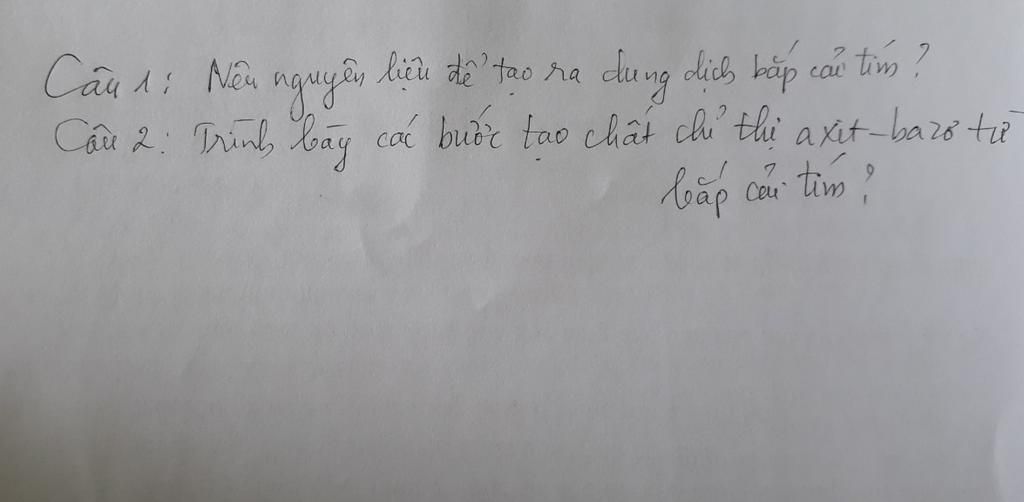 Câu 1: Nêu nguyên liệu để tạo ra dung dịch bắp cải tím?
Câu 2: Trình bày các bước tạo chất chỉ thị axit-bazơ từ
bắp cải tím?